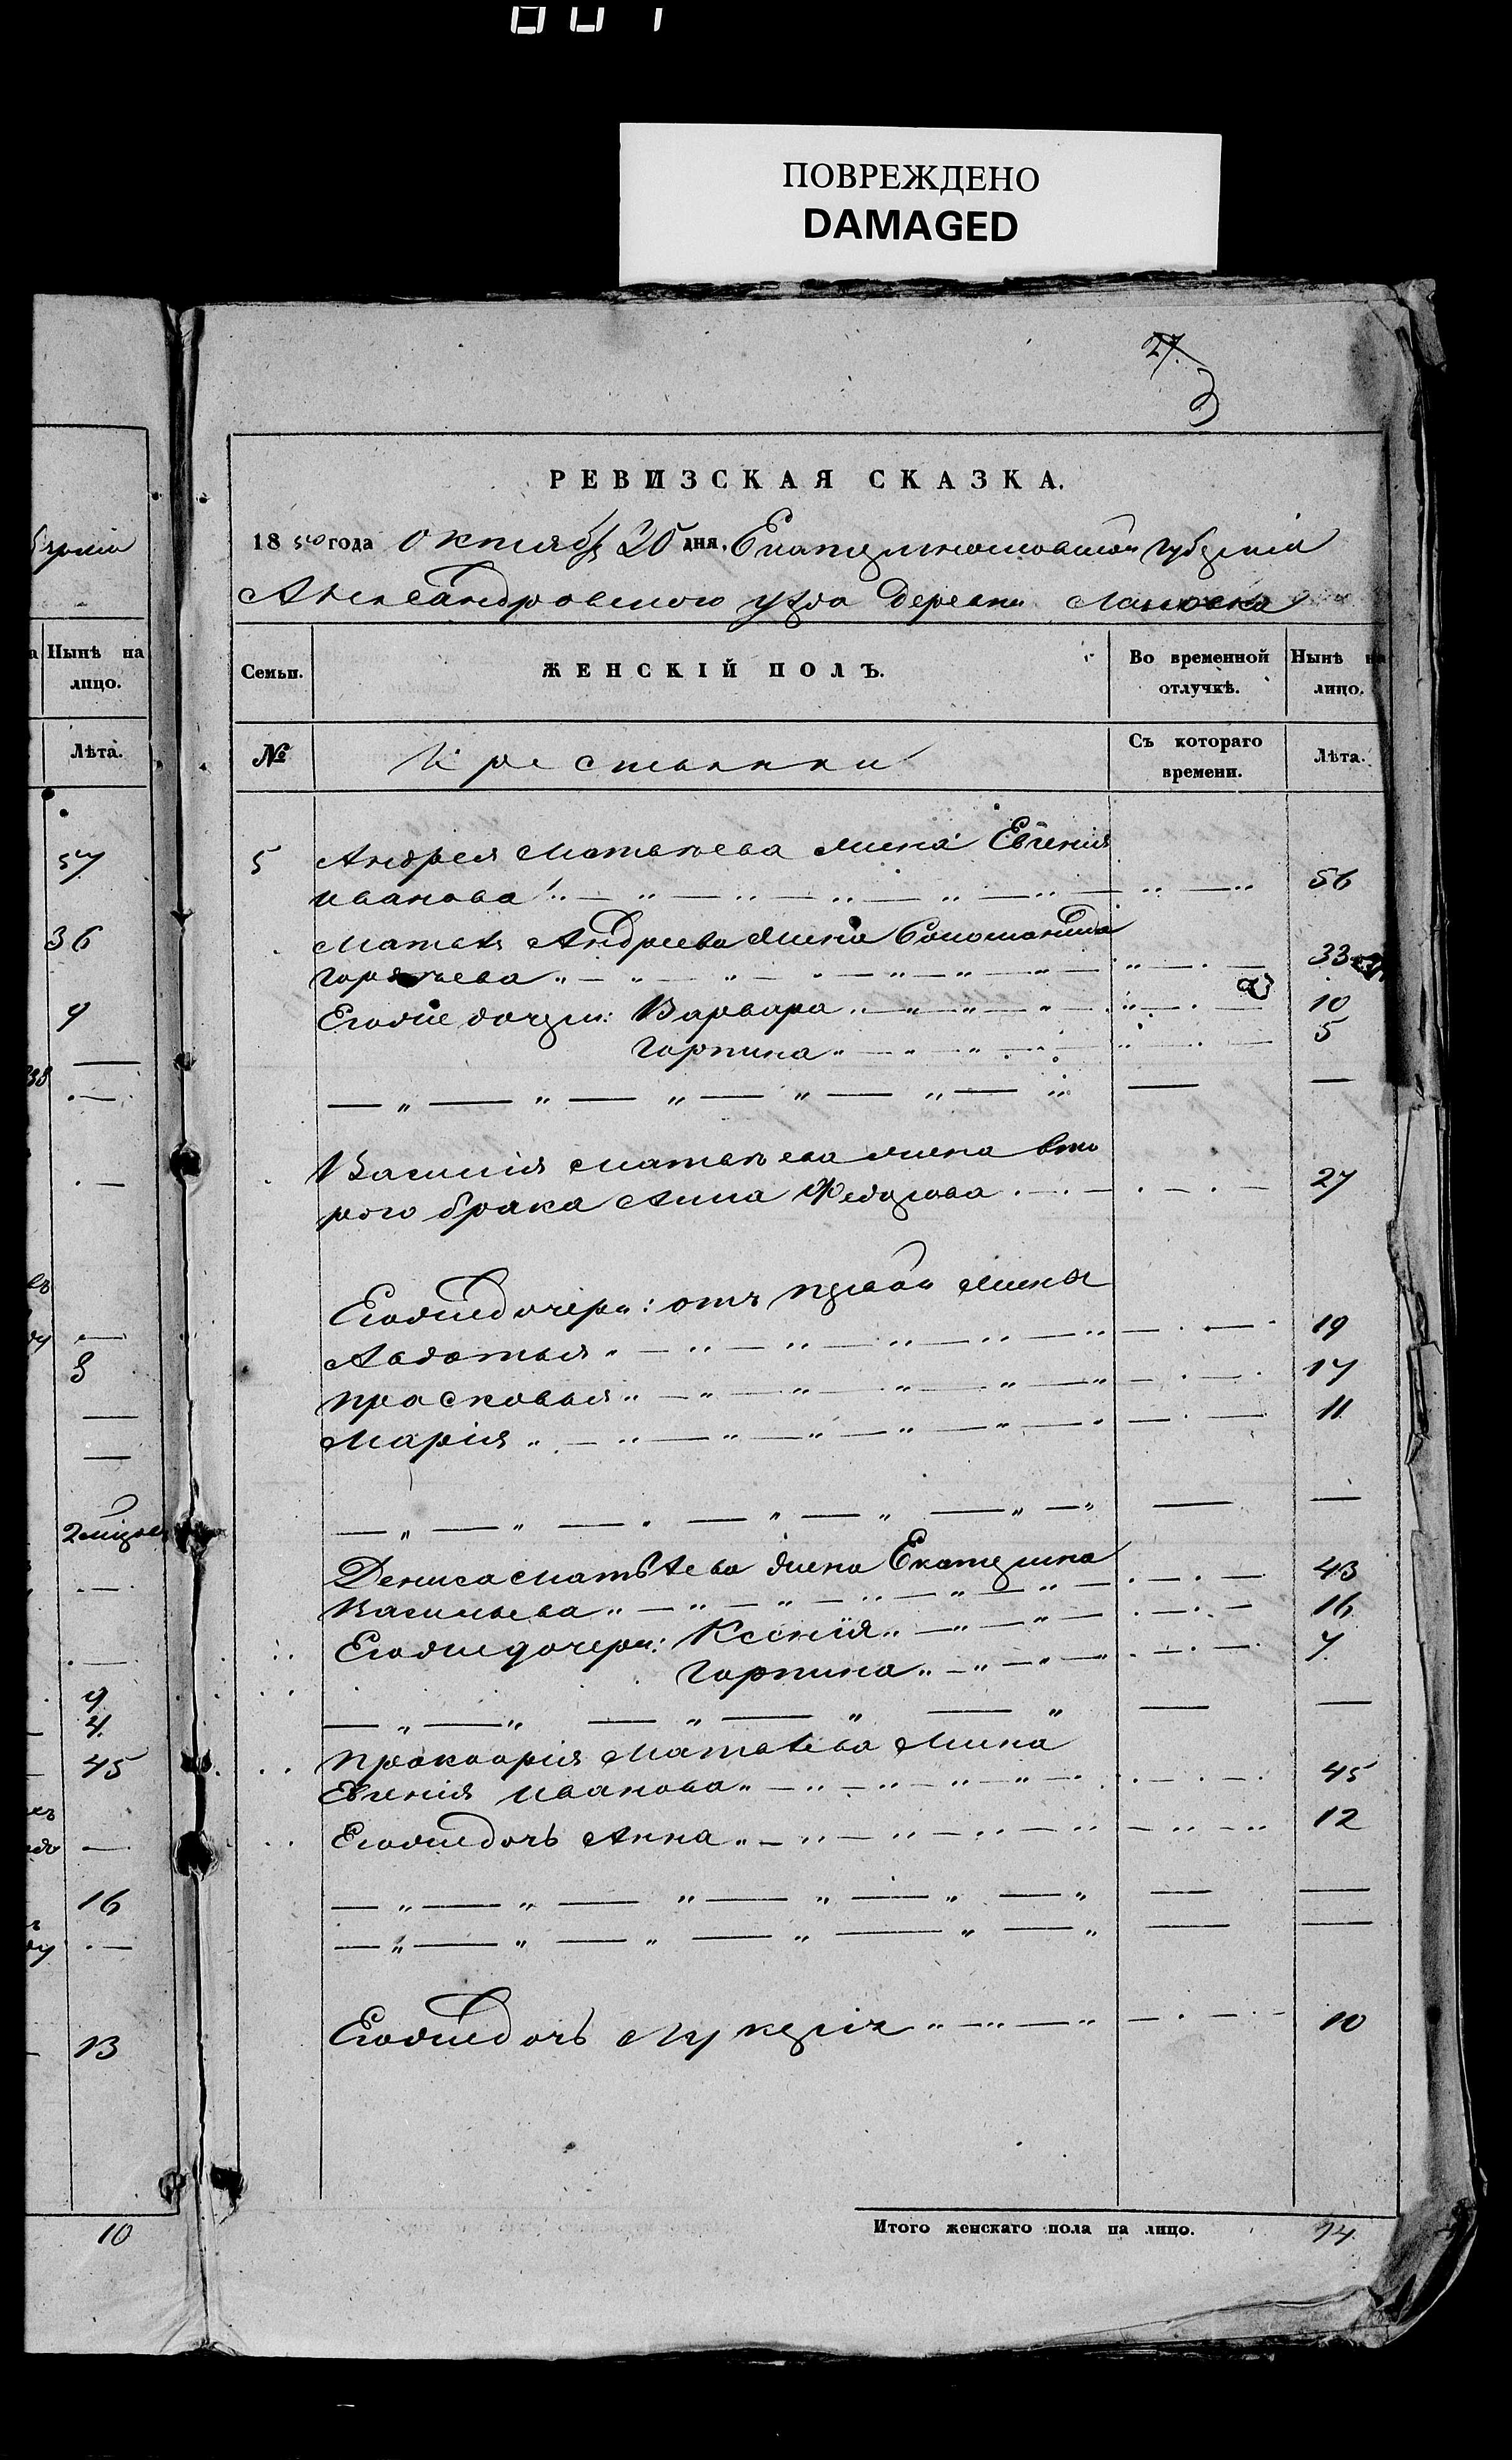 ПОВРЕЖДЕНО
DAMAGED
27.
РЕВИЗСКАЯ СКАЗКА.
1850 года Октября 20 дня. Екатеринославской губерніи
Александровского уезда деревни
Семьи.
ЖЕНСКІЙ ПОЛЪ.
Во временной отлучкѣ.
Нынѣ на лицо.
№
Крестьянки
Съ котораго времени.
Лѣта.
5 Андрея Матвѣева жена Евгенія
Иванова 56
Матвѣя Андреева жена Соломанида
33
Егоже дочери: Варвара 10
Горпина 5
Василія Матвѣева жена вто
рого брака Анна Федорова 27
Егоже дочери: отъ первой жены
Авдотья 19
Прасковья 17
Марія 11
Дениса Матвѣева жена Екатерина
Васильева 43
Егоже дочери: Ксенія 16
Горпина 7
Прокофія Матвѣева жена
Евгенія Иванова 45
Егоже дочь Анна 12
Егоже дочь Лукерія 10
Итого женскаго пола на лицо. 14
Нынѣ на лицо.
Лѣта.
57
36
9
9
4
45
16
13
10